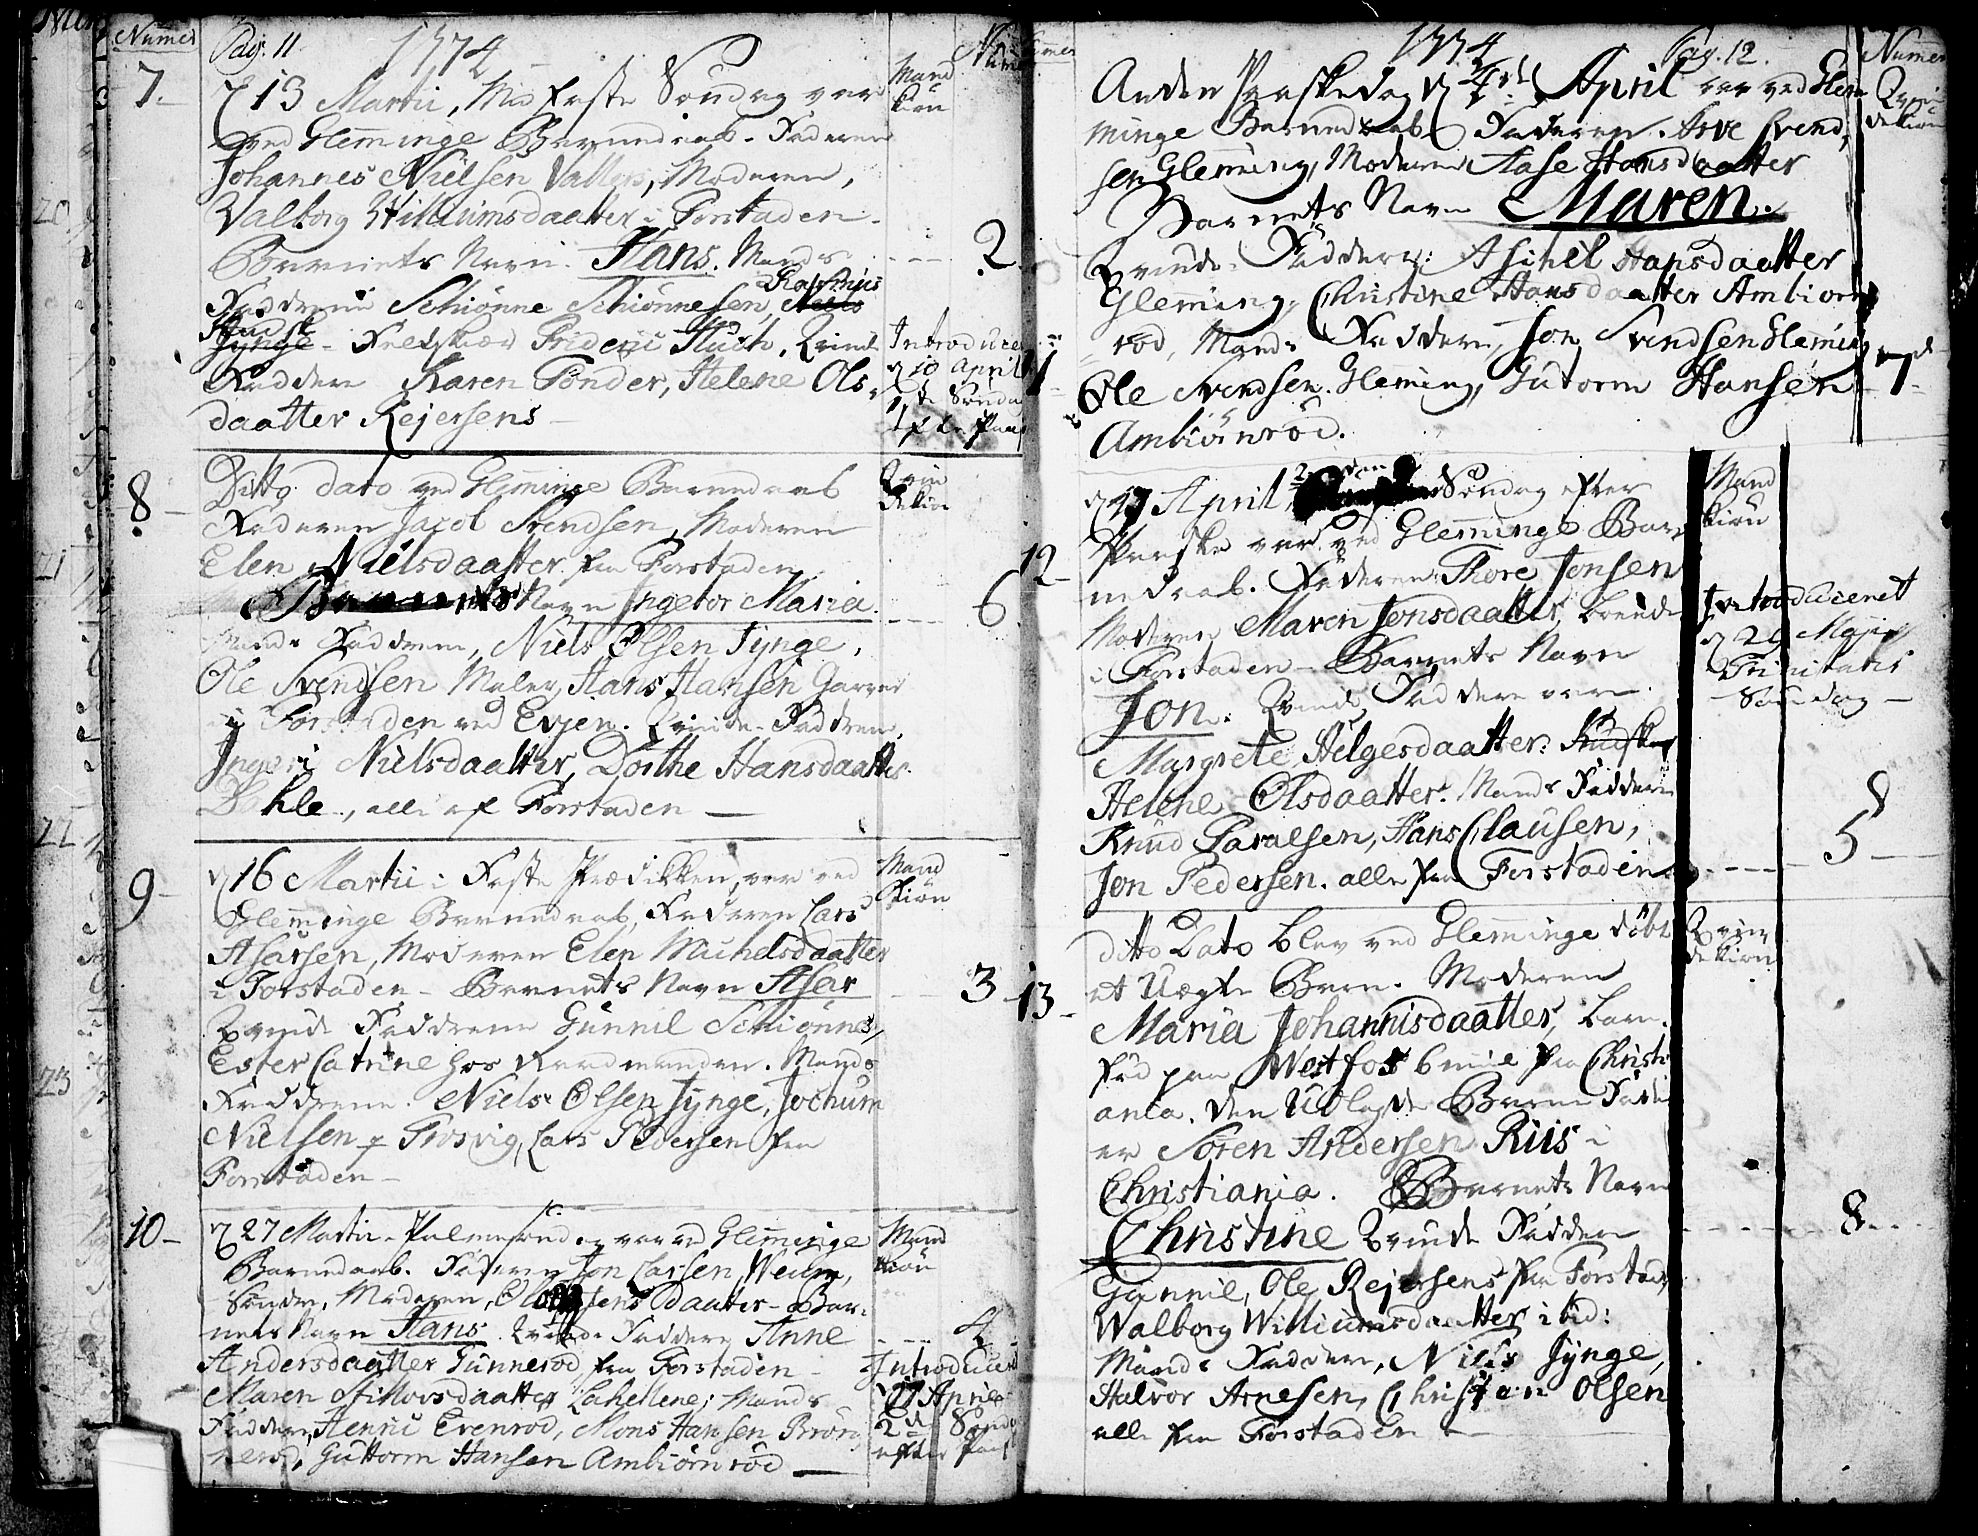 Numer
Pag. 11
1774
7.
13 Martii, Midfaste Søndag var
ved Glemminge Barnedaab. Faderen
Johannes Nielsen Vallers, Moderen,
Valborg Williumsdaatter i Forstaden.
Barnets Navn. Hans. Mands
Rasmus
Fadderne Schiønne Schiønnesen
Jynge. Frideric Huth, Qvinde
Faddere Karen Tønder, Helene Ols-
daatter Rejersens
Mand
kiøn
2
Introduceret
10 April
8
Ditto dato ved Glemminge Barnedaab
Faderen Jacob Svendsen, Moderen
Elen Nielsdaatter fra Forstaden
Barnets Navn Ingebor Maria.
Mands Fadderne, Niels Olsen Jynge,
Ole Svendsen Maler, Hans Hansen Garver
i Forstaden ved Evjen. Qvinde-Faddren,
Ingeri Nielsdaatter, Dorthe Hansdaatter
alle af Forstaden
Qvin
dekiøn
6
9
16 Martii i Faste Prædikken, var ved
Glemminge Barnedaab, Faderen Lars
Asarsen, Moderen Elen Michelsdaatter
i Forstaden - Barnets Navn Asar
Qvinde Fadderne Gunnil Schiønnes,
Ester Catrine hos Mands
Fadderne. Niels Olsen Jynge, Jochum
Nielsen Trosvig, Lars Pedersen fra
Forstaden
Mand
kiøn
3
10
27 Martii Palmesøndag var ved Glemminge
Barnedaab. Faderen Jon Larsen Weum,
Søndre, Moderen, daatter - Bar-
nets Navn Hans. Qvinde Faddere Anne
Andersdaatter Tunnerød, fra Forstaden
Maren daatter Lahellene; Mands
Faddere, Henric Evenrød, Mons Hansen
Guttorm Hansen Ambiørnrød
Mand
kiøn
4
Introduceret
17 April
2d Sønd
efter Paask
1774
Pag. 12.
Numer
11
Anden Paaskedag 4de April var ved Glem
minge Barnedaab Faderen. Arve Svend
sen Glemming, Moderen Aase Hansdaatter
Barnets Navn Maren.
Qvinde Faddere: Aschiel Hansdaatter
Glemming, Christine Hansdaatter Ambiørn
rød, Mands Faddere, Jon Svendsen Glemming
Ole Svendsen Glemming, Gutorm Hansen
Ambiörnröd.
Qvin
dekiøn
7
12
17 April 2den Søndag efter
Paaske var ved Glemminge Bar
nedaab. Faderen: Thore Jonsen
Moderen Maren Jonsdaatter, boende
i Forstaden - Barnets Navn
Jon. Qvinde Faddere vare
Margrete Helgesdaatter.
Helene Olsdaatter. Mands Faddere
Knud Pavalsen, Hans Clausen,
Jon Pedersen. alle fra Forstaden
Mand
kiøn
Introduceret
29 Maji
Trinitatis
Søndag
8
5
13
ditto Dato blev ved Glemminge døbt
et Uægte Barn. Moderen
Maria Johannisdaatter, baaren
fød paa Westfos 6 miil fra Christi
ania. Den Udlagde Barne Fader
er Søren Andersen Riis i
Christiania. Barnets Navn
Christine Qvinde Faddere
Gunnil, Ole Rejersens fra Forstad,
Walborg Williumsdaatter ibid:
Mands Faddere, Niels Jynge,
Halvor Arnesen, Christian Olsen
alle fra Forstaden
Qvin
dekiøn
8
20
21
22
23